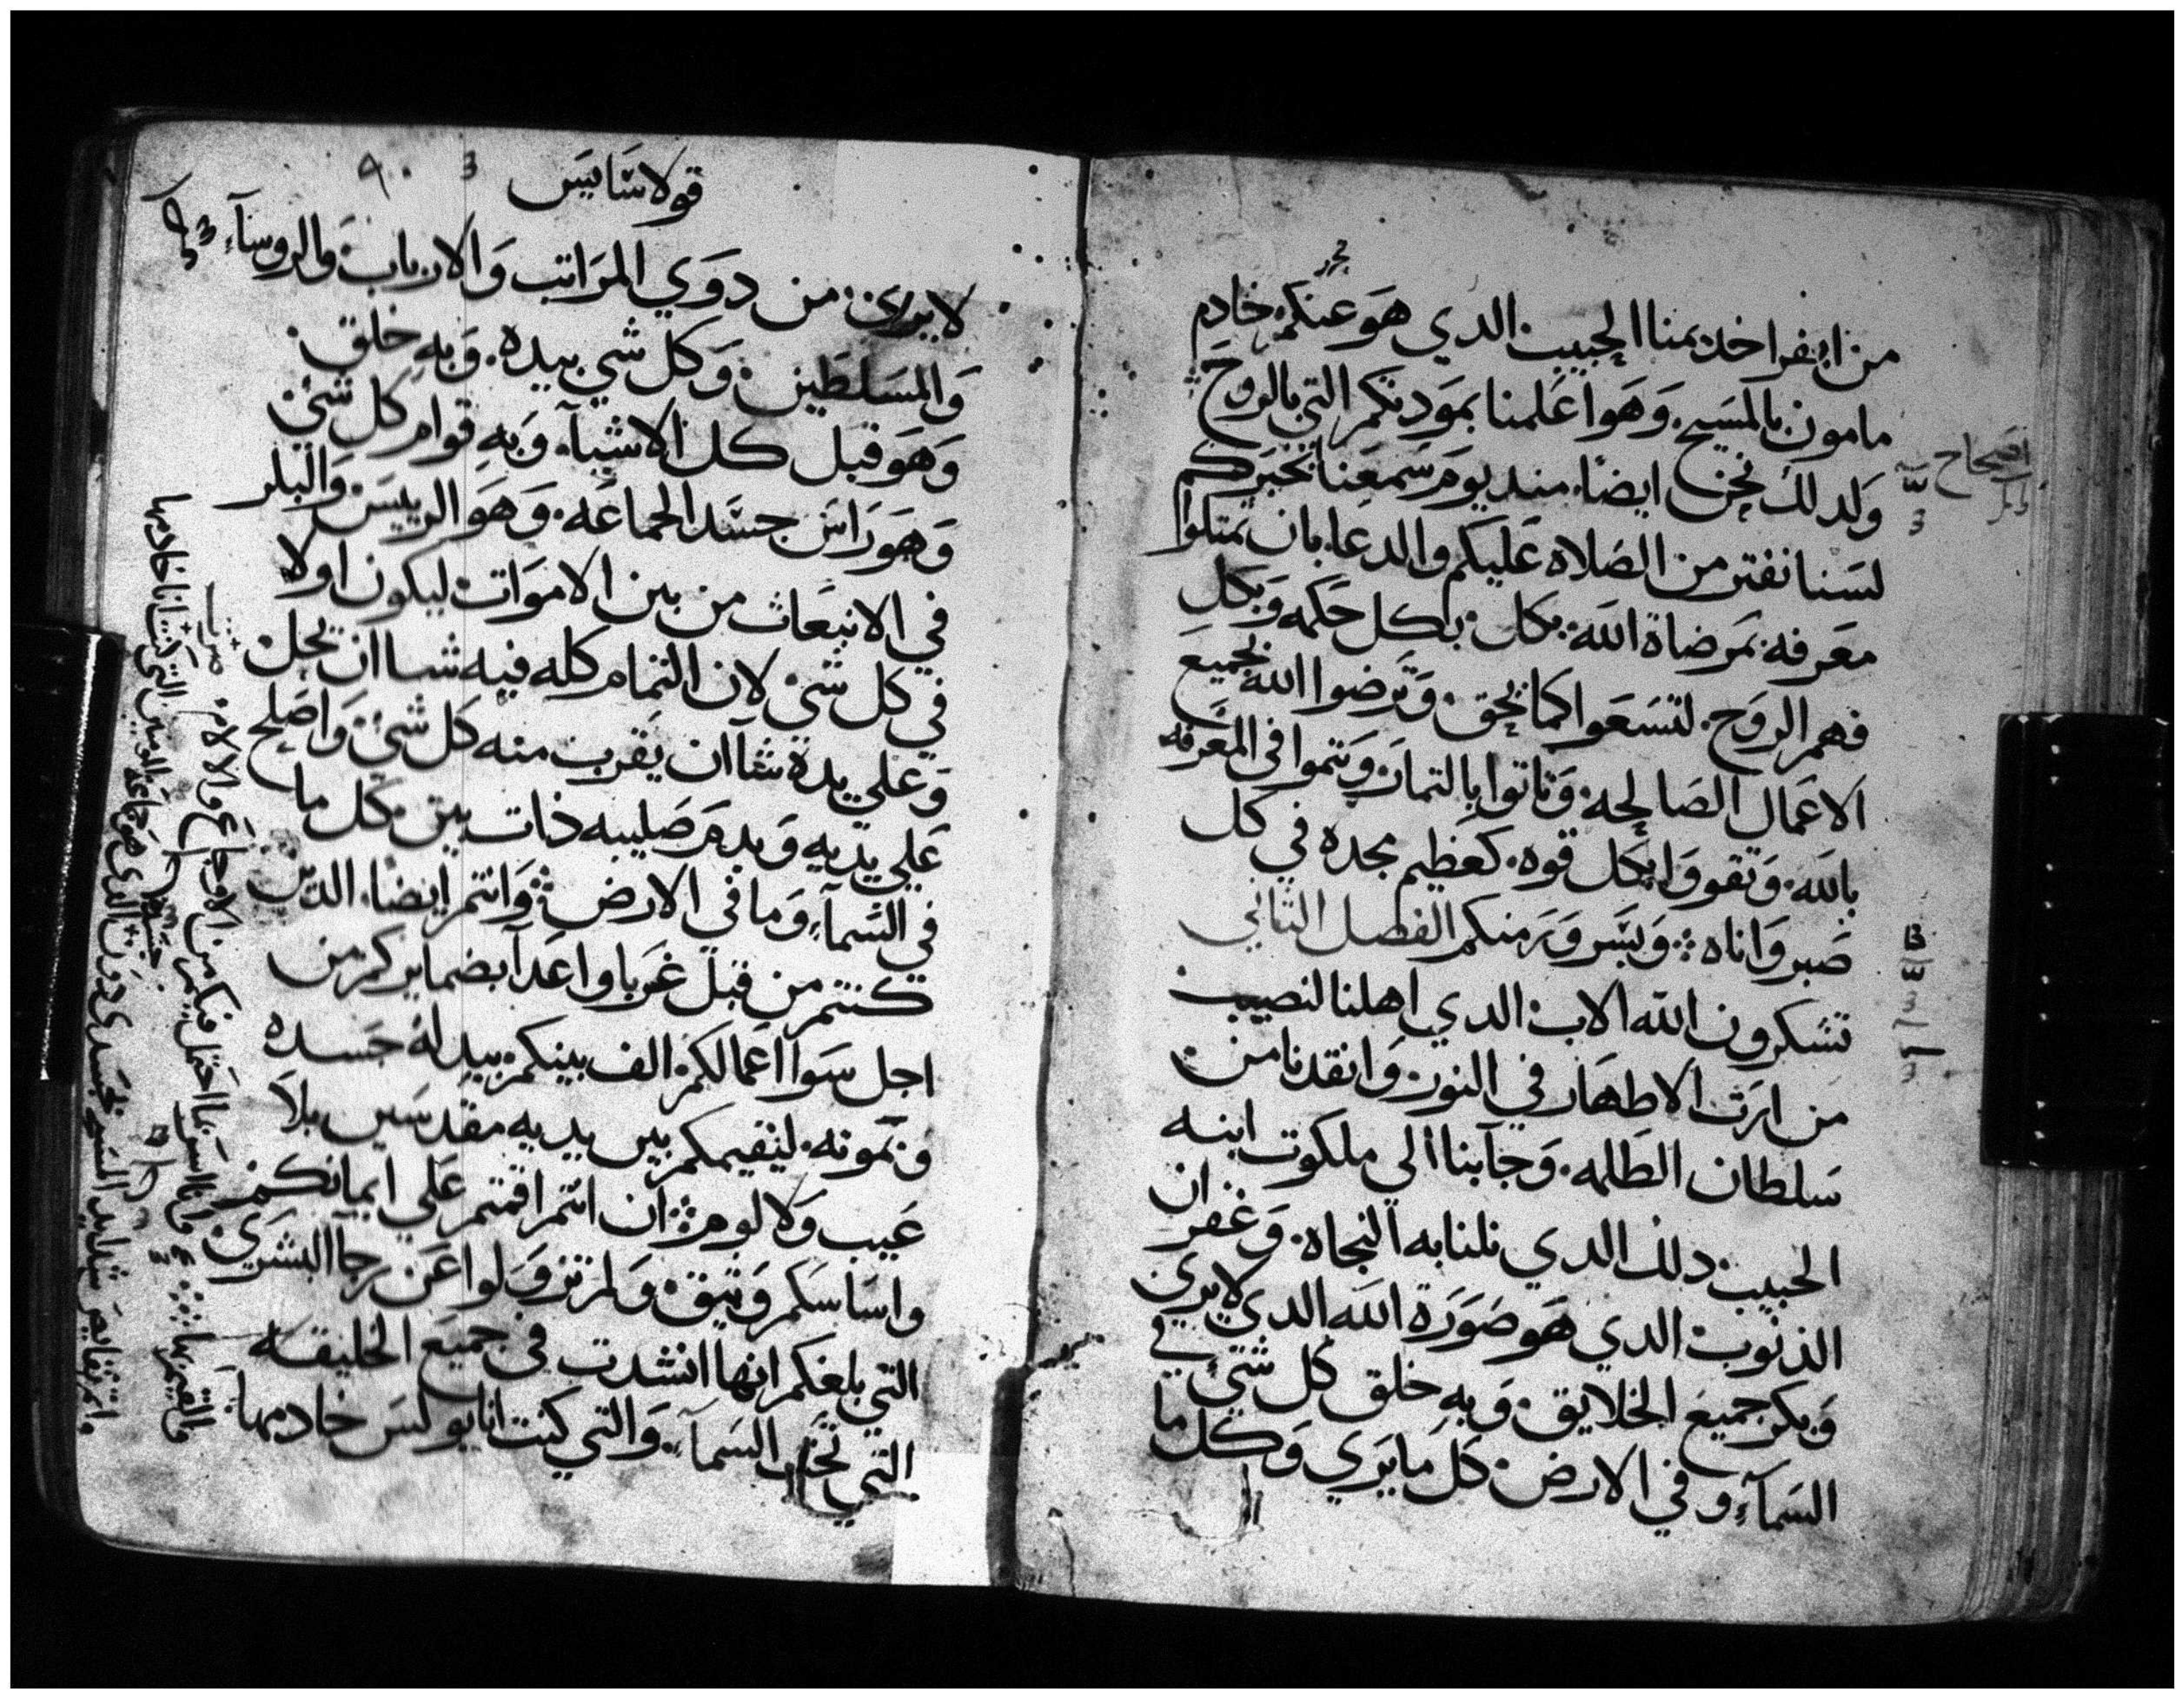 من ابفرا خديمنا الحبيب الدي هو عنكم خادم
مامون بالمسيح. وهو اعلمنا بمودتكم التي بالروح
ولدلك نحن ايضا منديوم سمعنا نخبركم
لسنا نفتر من الصلاه عليكم والدعا بان تمتلوا
معرفه بمرضاة الله بكل حكمه وبكل
فهم الروح. لتسعوا كما يحق. وترضوا الله بجميع
الاعمال الصالحه وتاتوا بالتمار وتنموا في المعرفه
بالله. وتقووا بكل قوه. كعظيم مجده في كل
صبر واناه ∴ وبسرور منكم الفصل الثاني
تشكرون الله الاب الدي اهلنا لنصيب
من ارث الاطهار في النور وانقدنا من
سلطان الظلمه. وجابنا الي ملكوت ابنه
الحبيب دلك الدي نلنا به النجاه. وغفران
الذنوب الدي هو صورة الله الدي لا يري
وبكر جميع الخلايق. وبه خلق كل شي في
السمآء وفي الارض. كل ما يري وكل ما
اصحاح
قولاسايس
لا يري. من دوي المراتب والارباب والروسآء
والمسلطين. وكل شي بيده. وبه خلق.
وهو قبل كل الاشيآء. وبه قوام كل شي
وهو راس جسد الجماعه. وهو الرييس والبكر
في الانبعاث من بين الاموات ليكون اولا
في كل شي لان التمام كله فيه شا ان يحل
وعلي يده شآ ان يقرب منه كل شي واصلح
علي يديه وبدم صليبه ذات بين كل ما
في السمآء وما في الارض ∴ وانتم ايضا الدين
كنتم من قبل غربا واعدآ بضمايركم من
اجل سوا اعمالكم الف بينكم ببدله جسده
وبموته. ليقيمكم بين يديه مقدسين بلا
عيب ولا لوم ∴ ان انتم اقمتم علي ايمانكم
واساسكم وثيق. ولم تزولوا عن رجا البشري.
التي بلغكم انها انشدت في جميع الخليقه
التي تحت السمآء. والتي كنت انا بولس خادمها